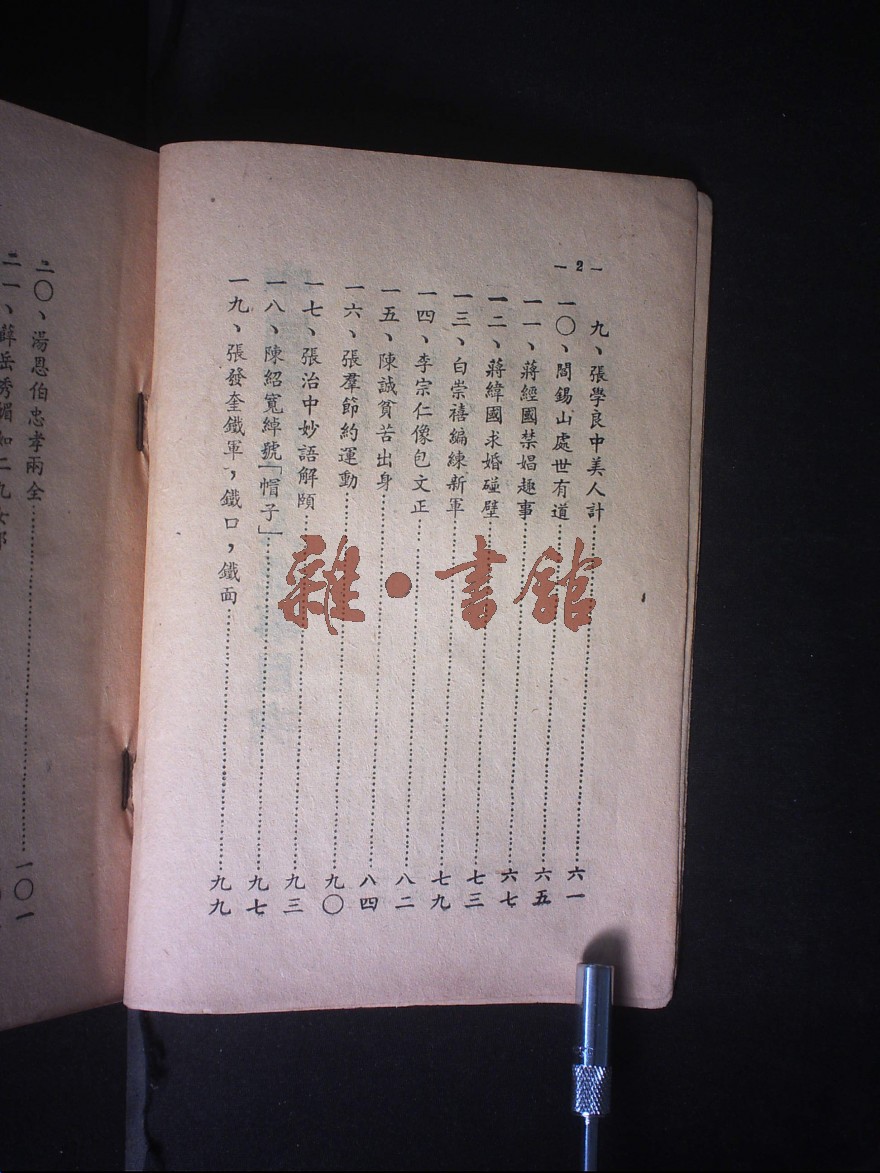 — 2 —
九、張學良中美人計……六一
一〇、閻錫山處世有道……六五
一一、蔣經國禁娼趣事……六七
一二、蔣緯國求婚碰壁……七三
一三、白崇禧編練新軍……七九
一四、李宗仁像包文正……八二
一五、陳誠貧苦出身……八四
一六、張羣節約運動……九〇
一七、張治中妙語解頤……九三
一八、陳紹寬綽號「帽子」……九七
一九、張發奎鐵軍，鐵口，鐵面……九九
二〇、湯恩伯忠孝兩全……一〇一
二一、薛岳秀媚如二九女郎
雜·書館